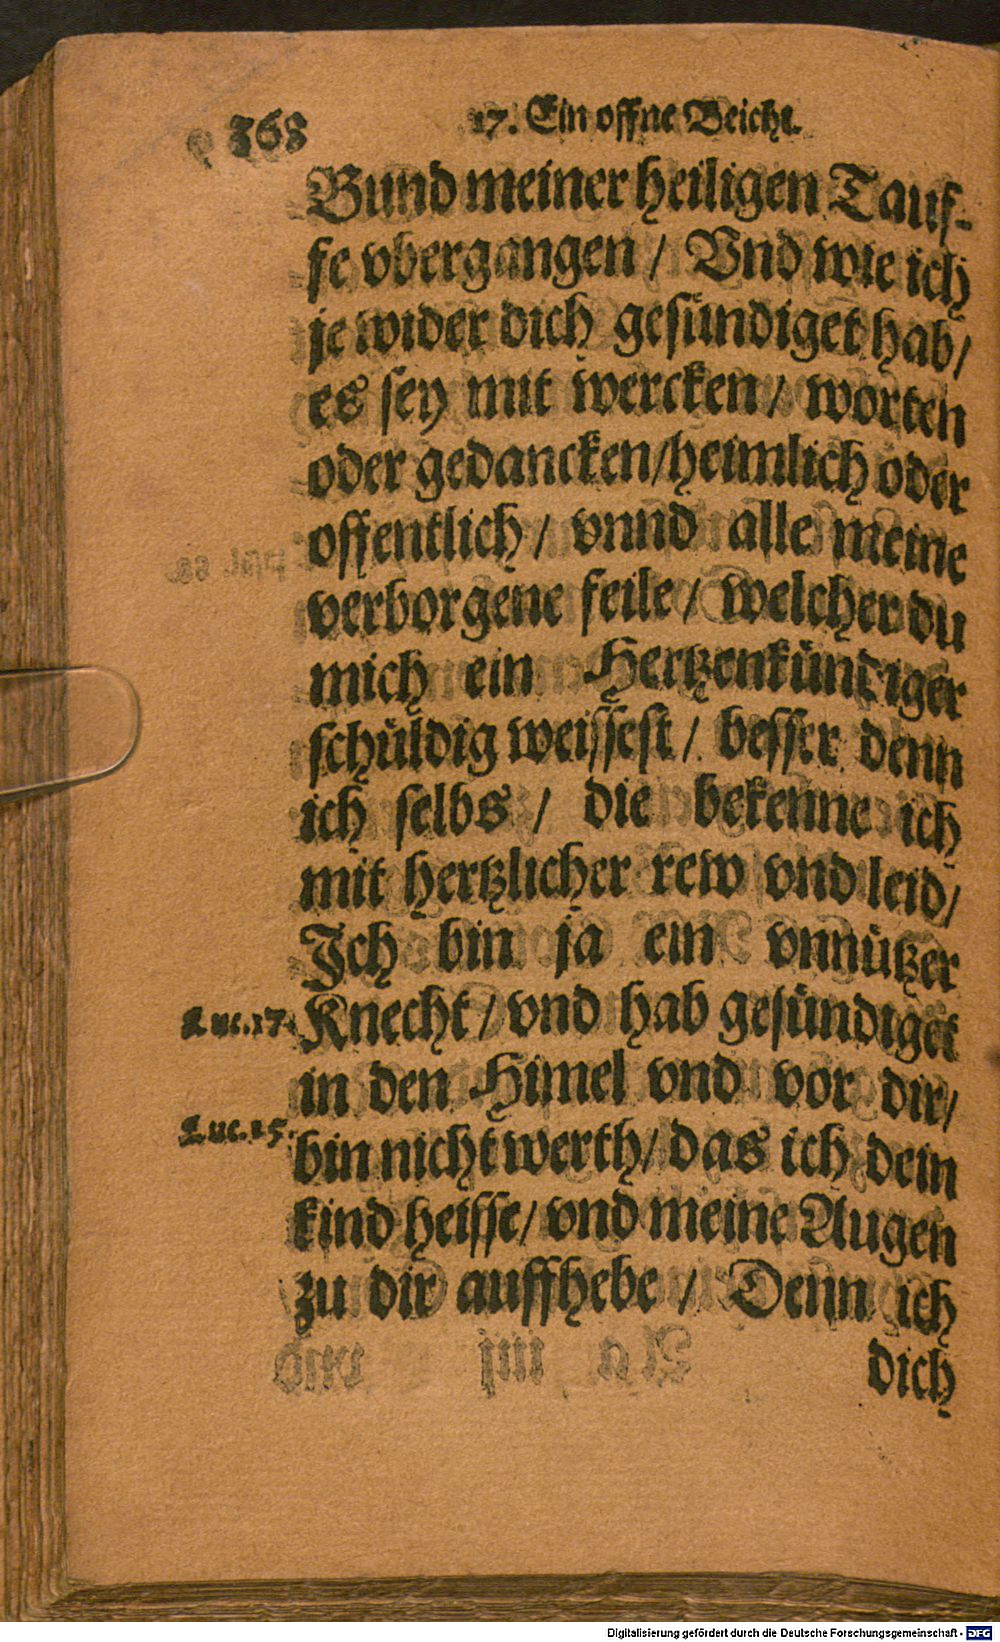 368 17. Ein offne Beicht.
Bund meiner heiligen Tauf-
fe vbergangen / Vnd wie ich
je wider dich gesündiget hab /
es sey mit wercken / worten
oder gedancken / heimlich oder
offentlich / vnnd alle meine
verborgene feile / welcher du
mich ein Hertzenkündiger
schüldig weissest / besser denn
ich selbs / die bekenne ich
mit hertzlicher rew vnd leid /
Ich bin ja ein vnnützer
Luc.17. Knecht / vnd hab gesündiget
in den Himel vnd vor dir /
Luc.15. bin nicht werth / das ich dein
kind heisse / vnd meine Augen
zu dir auffhebe / Denn ich
dich
Digitalisierung gefördert durch die Deutsche Forschungsgemeinschaft - DFG